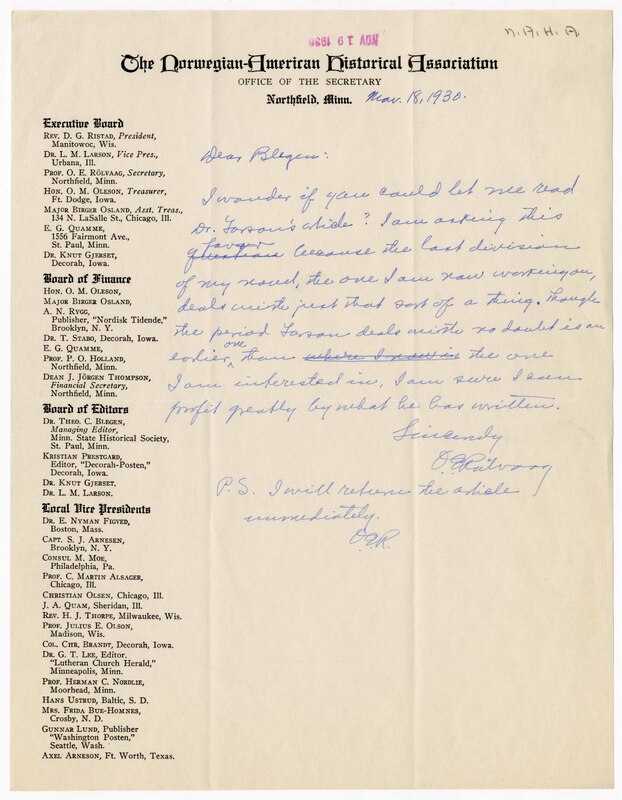 N.A.H.A.
NOV 19 1930
The Norwegian-American Historical Association
OFFICE OF THE SECRETARY
Northfield, Minn. Nov. 18, 1930.
Executive Board
REV. D. G. RISTAD, President,
Manitowoc, Wis.
DR. L. M. LARSON, Vice Pres.,
Urbana, Ill.
PROF. O. E. RÖLVAAG, Secretary,
Northfield, Minn.
HON. O. M. OLESON, Treasurer,
Ft. Dodge, Iowa.
MAJOR BIRGER OSLAND, Asst. Treas.,
134 N. LaSalle St., Chicago, Ill.
E. G. QUAMME,
1556 Fairmont Ave.,
St. Paul, Minn.
DR. KNUT GJERSET,
Decorah, Iowa.
Board of Finance
HON. O. M. OLESON,
MAJOR BIRGER OSLAND,
A. N. RYGG,
Publisher, "Nordisk Tidende,"
Brooklyn, N. Y.
DR. T. STABO, Decorah, Iowa.
E. G. QUAMME,
PROF. P. O. HOLLAND,
Northfield, Minn.
DEAN J. JÖRGEN THOMPSON,
Financial Secretary,
Northfield, Minn.
Board of Editors
DR. THEO. C. BLEGEN,
Managing Editor,
Minn. State Historical Society,
St. Paul, Minn.
KRISTIAN PRESTGARD,
Editor, "Decorah-Posten,"
Decorah, Iowa.
DR. KNUT GJERSET.
DR. L. M. LARSON.
Local Vice Presidents
DR. E. NYMAN FIGVED,
Boston, Mass.
CAPT. S. J. ARNESEN,
Brooklyn, N. Y.
CONSUL M. MOE,
Philadelphia, Pa.
PROF. C. MARTIN ALSAGER,
Chicago, Ill.
CHRISTIAN OLSEN, Chicago, Ill.
J. A. QUAM, Sheridan, Ill.
REV. H. J. THORPE, Milwaukee, Wis.
PROF. JULIUS E. OLSON,
Madison, Wis.
COL. CHR. BRANDT, Decorah, Iowa.
DR. G. T. LEE, Editor.
"Lutheran Church Herald,"
Minneapolis, Minn.
PROF. HERMAN C. NORDLIE,
Moorhead, Minn.
HANS USTRUD, Baltic, S. D.
MRS. FRIDA BUE-HOMNES,
Crosby, N. D.
GUNNAR LUND, Publisher
"Washington Posten,"
Seattle, Wash.
AXEL ARNESON, Ft. Worth, Texas.
Dear Blegen:
I wonder if you could let me read
Dr. Larson's article? I am asking this
favor
question because the last division
of my novel, the one I am now working on,
deals with just that sort of a thing. Though
the period Larson deals with no doubt is an
earlier one than where I now is the one
I am interested in, I am sure I can
profit greatly by what he has written.
Sincerely
O.E. Rölvaag
P.S. I will return the article
immediately.
O.E.R.